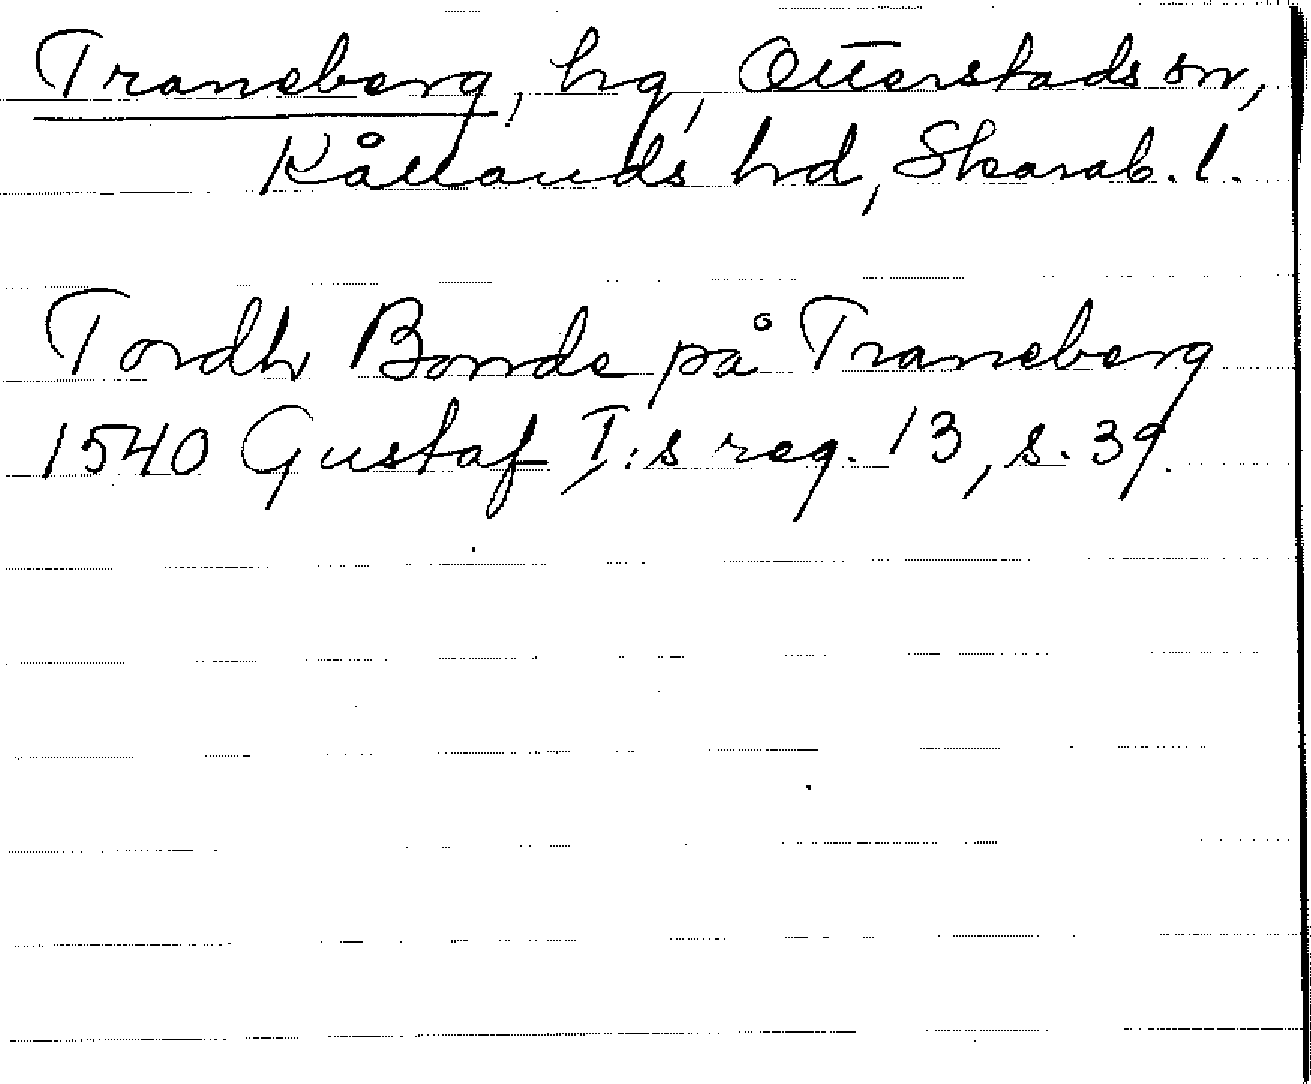 Traneberg, hg, Otterstads sn,
Kållands hd, Skarab. l.
Tordh Bonde på Traneberg
1540 Gustaf I:s reg. 13, s. 39.